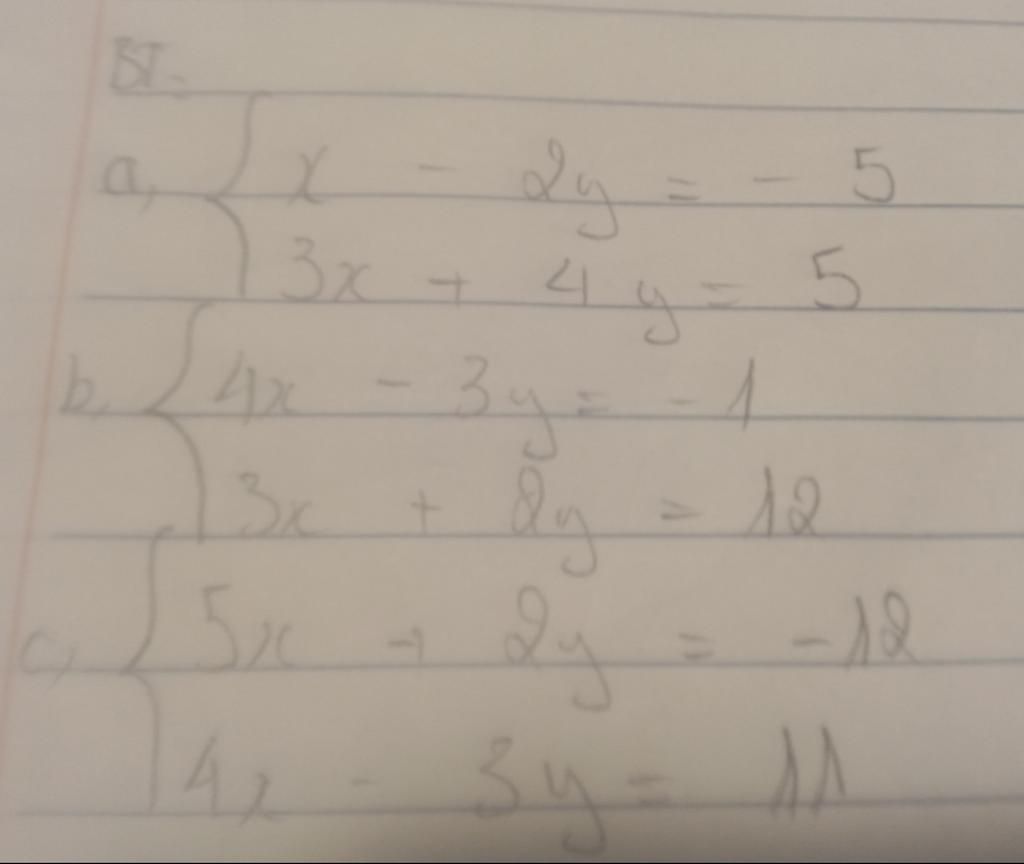 BT:
a, { x - 2y = - 5
3x + 4y = 5
b, { 4x - 3y = - 1
3x + 2y = 12
c, { 5x + 2y = -12
4x - 3y = 11